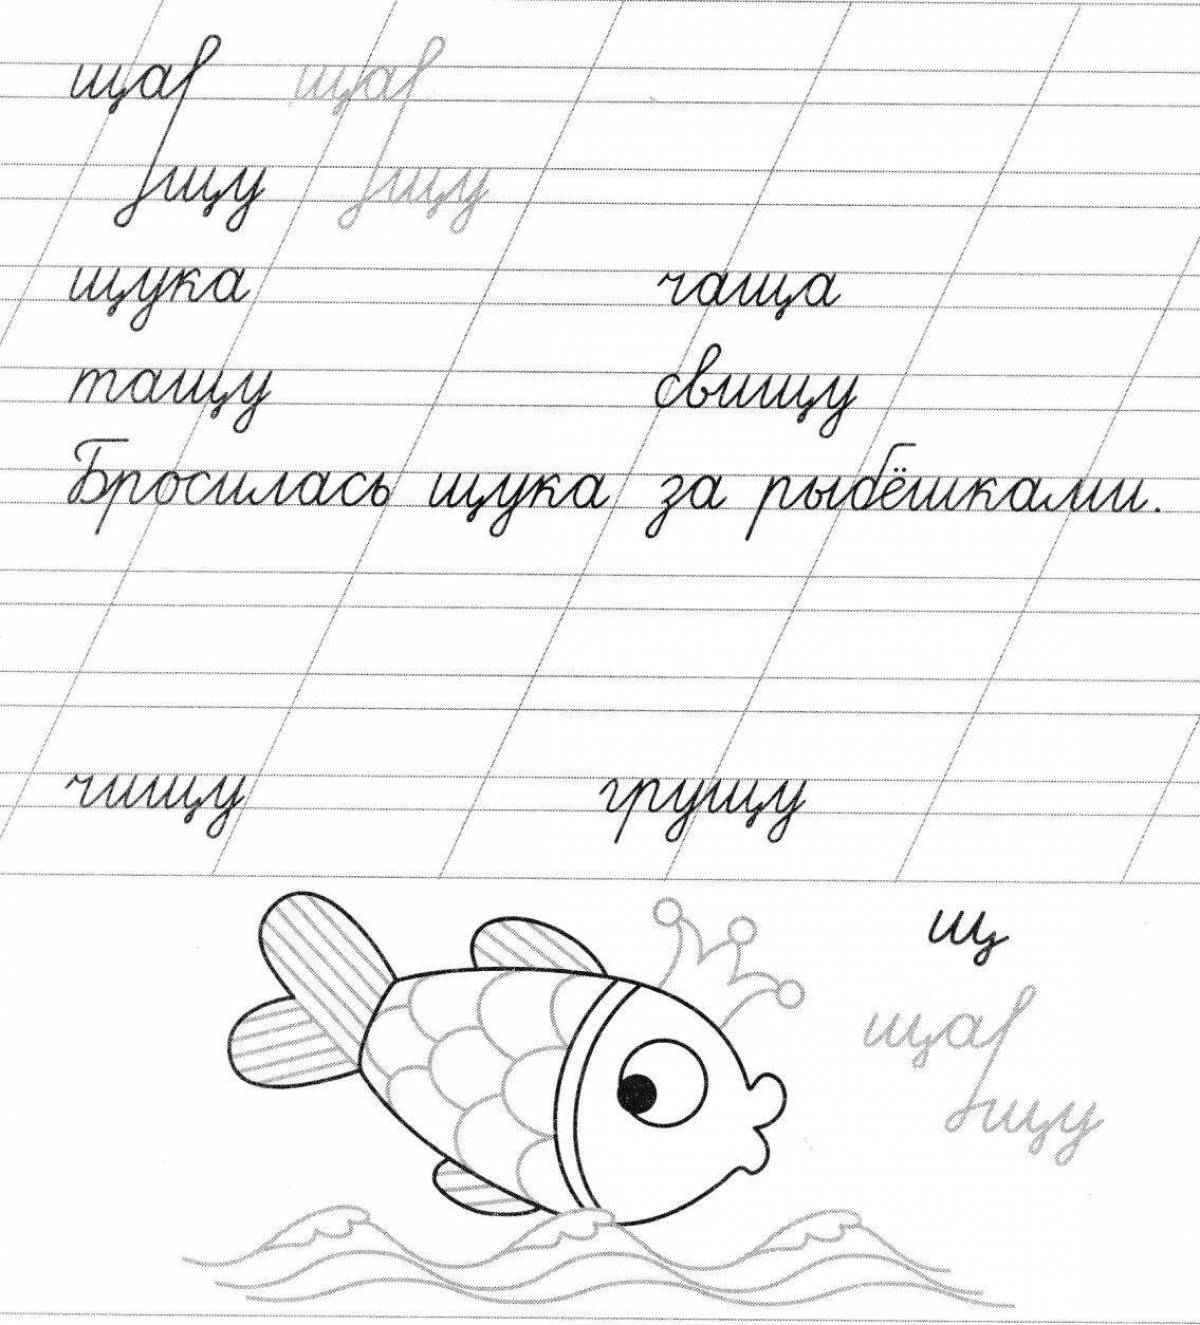 ща ща
щу щу
щука чаща
тащу свищу
Бросилась щука за рыбёшками.
чищу грущу
щ
ща
щу